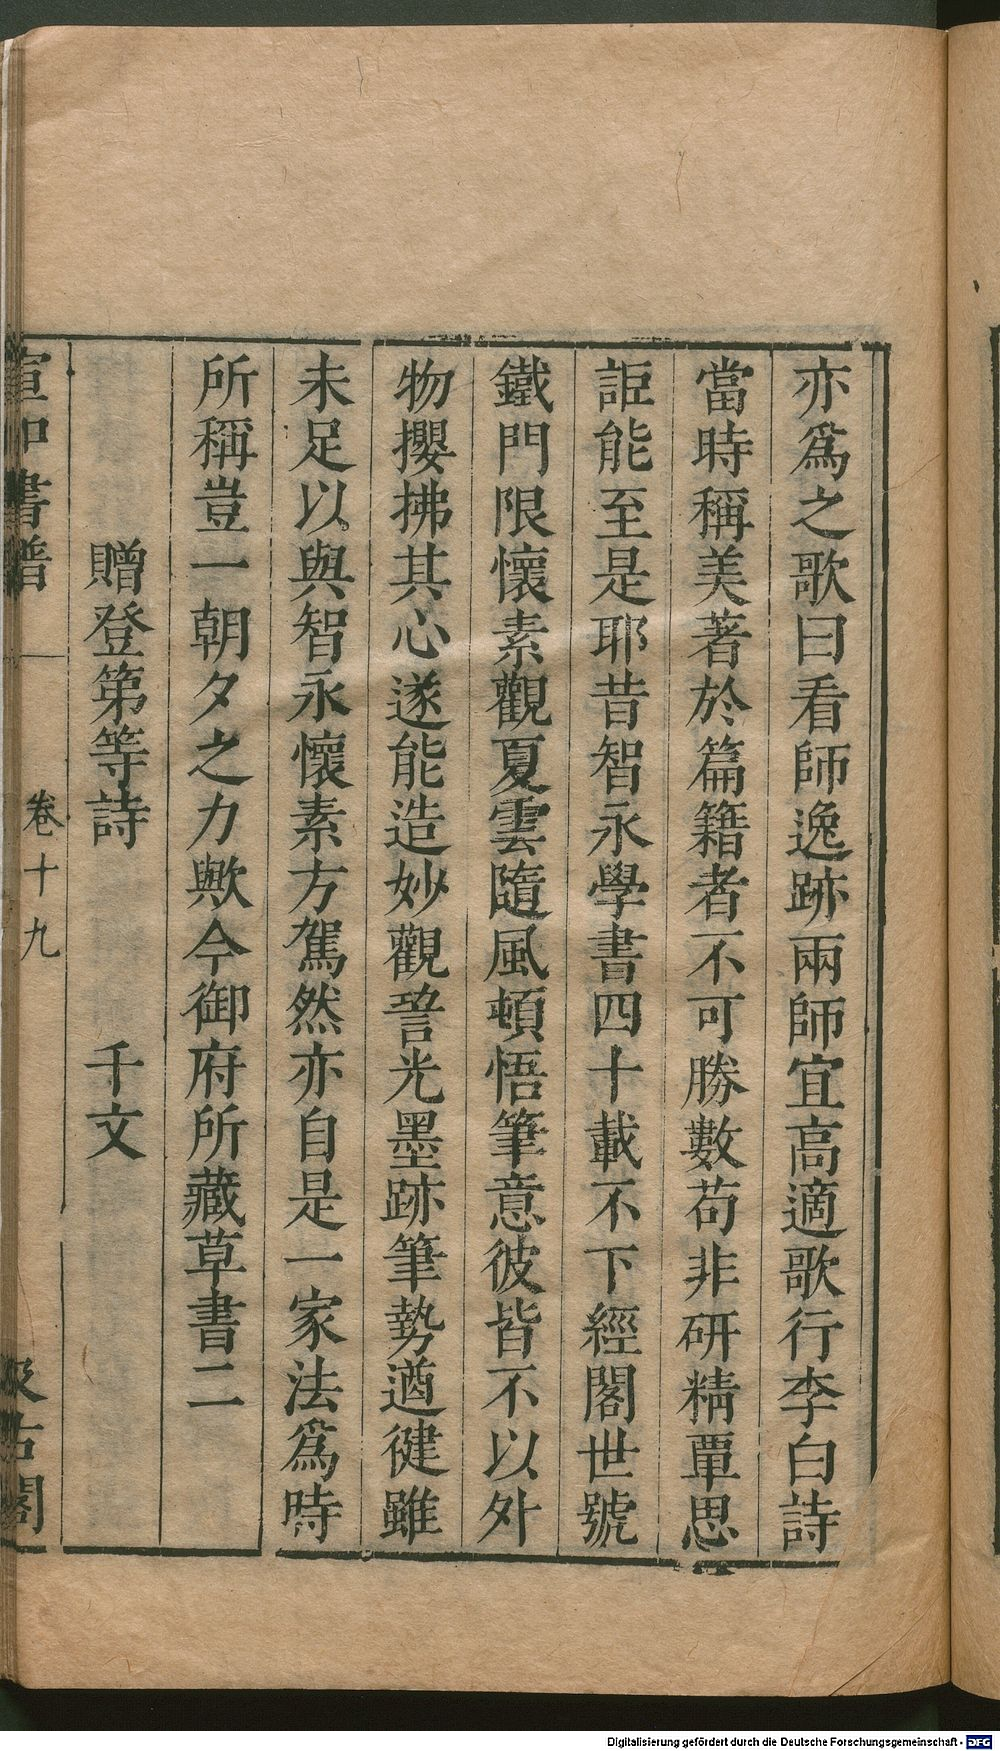 亦爲之歌曰看師逸跡兩師宜高適歌行李白詩
當時稱美著於篇籍者不可勝數苟非研精覃思
詎能至是耶昔智永學書四十載不下經閣世號
鐵門限懷素觀夏雲隨風頓悟筆意彼皆不以外
物攖拂其心遂能造妙觀䛒光墨跡筆勢遒健雖
未足以與智永懷素方駕然亦自是一家法爲時
所稱豈一朝夕之力歟今御府所藏草書二
贈登第等詩 千文
宣和書譜 卷十九 汲古閣
Digitalisierung gefördert durch die Deutsche Forschungsgemeinschaft - DFG